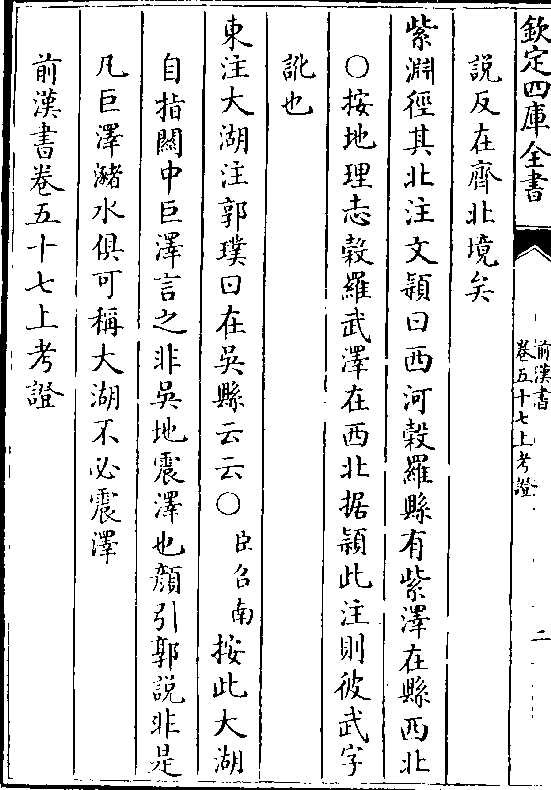 欽定四庫全書
前漢書
卷五十七上考證
二
說反在齊北境矣
紫淵徑其北注文穎曰西河穀羅縣有紫澤在縣西北
○按地理志穀羅武澤在西北据穎此注則彼武字
訛也
東注大湖注郭璞曰在吳縣云云○臣召南按此大湖
自指關中巨澤言之非吳地震澤也顏引郭說非是
凡巨澤瀦水俱可稱大湖不必震澤
前漢書卷五十七上考證